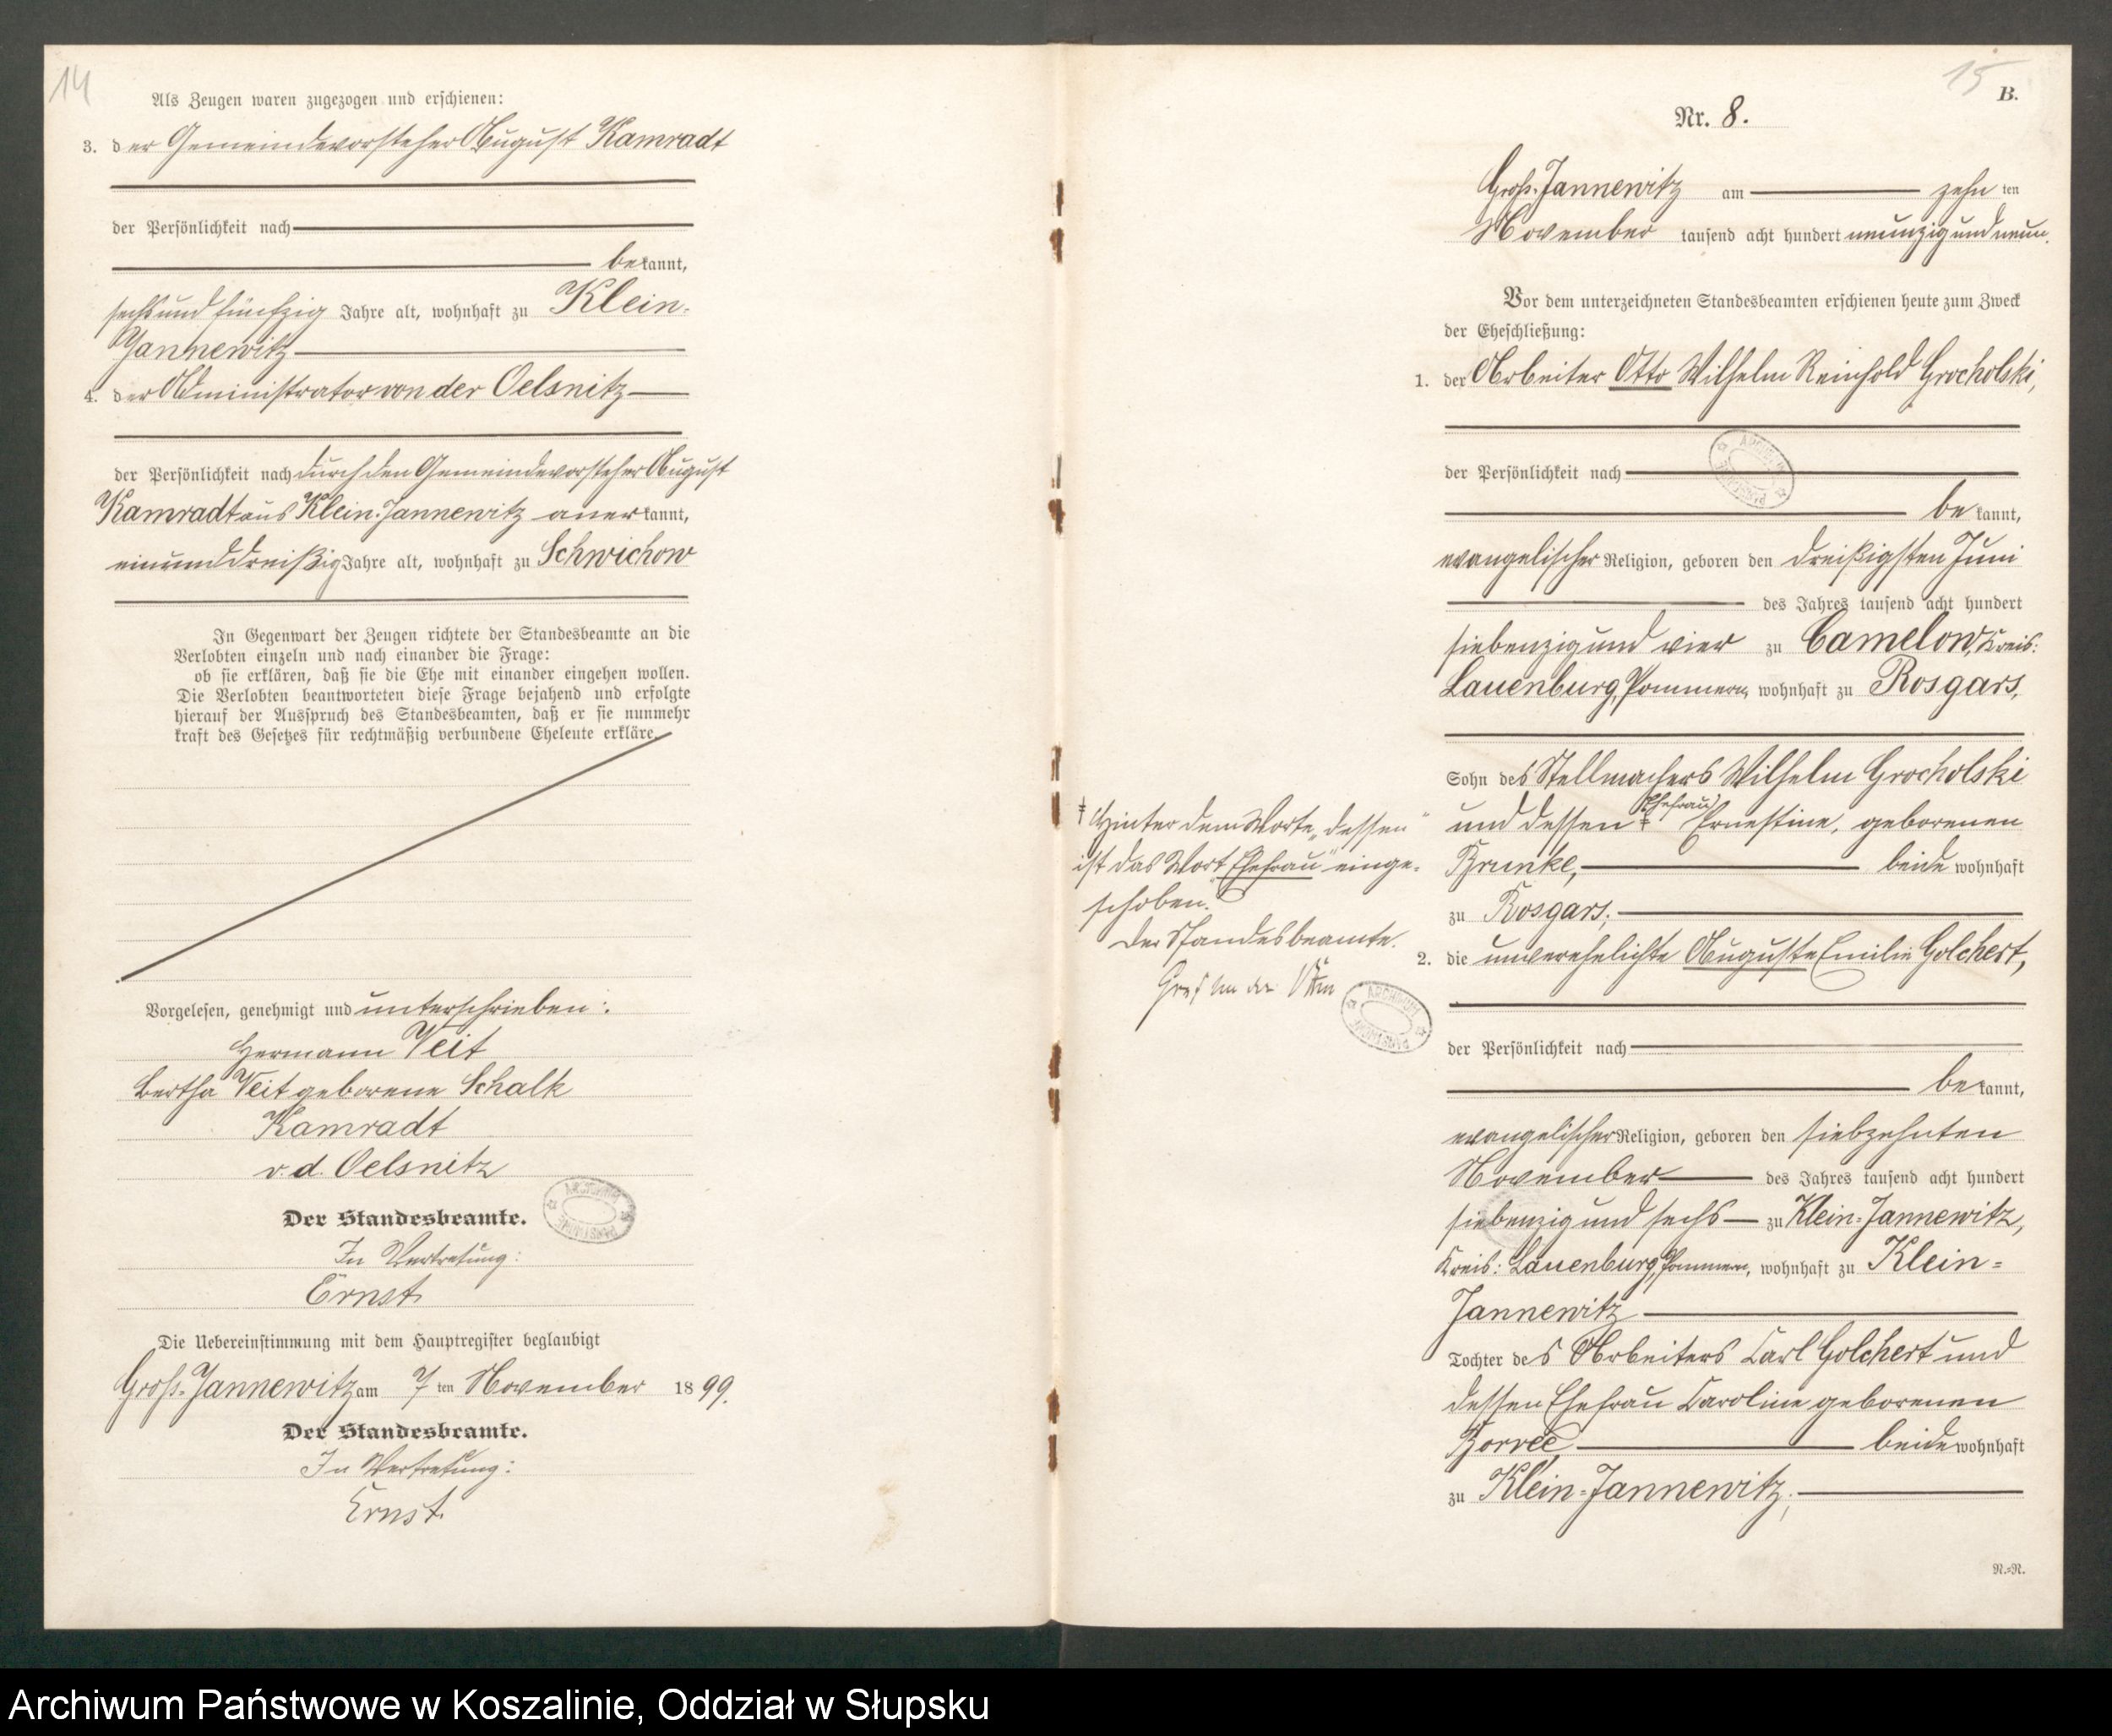 14
Als Zeugen waren zugezogen und erschienen:
3. der Gemeindevorsteher August Kamradt
der Persönlichkeit nach
bekannt,
sechsundfünfzig Jahre alt, wohnhaft zu Klein-
Jannewitz
4. der Administrator von der Oelsnitz
der Persönlichkeit nach durch den Gemeindevorsteher August
Kamradt aus Klein-Jannewitz anerkannt,
einunddreißig Jahre alt, wohnhaft zu Schwichow
In Gegenwart der Zeugen richtete der Standesbeamte an die
Verlobten einzeln und nach einander die Frage:
ob sie erklären, daß sie die Ehe mit einander eingehen wollen.
Die Verlobten beantworteten diese Frage bejahend und erfolgte
hierauf der Ausspruch des Standesbeamten, daß er sie nunmehr
kraft des Gesetzes für rechtmäßig verbundene Eheleute erkläre.
Vorgelesen, genehmigt und unterschrieben:
Hermann Veit
Bertha Veit geborene Schalk
Kamradt
v. d. Oelsnitz
Der Standesbeamte.
In Vertretung:
Ernst
Die Uebereinstimmung mit dem Hauptregister beglaubigt
Groß-Jannewitz am 7 ten November 1899.
Der Standesbeamte.
In Vertretung:
Ernst.
15
B.
Nr. 8.
Groß-Jannewitz am zehn ten
November tausend acht hundert neunzig und neun.
Vor dem unterzeichneten Standesbeamten erschienen heute zum Zweck
der Eheschließung:
1. der Arbeiter Otto Wilhelm Reinhold Grocholski,
der Persönlichkeit nach
bekannt,
evangelischer Religion, geboren den dreißigsten Juni
des Jahres tausend acht hundert
siebenzig und vier zu Camelow, Kreis:
Lauenburg, Pommern, wohnhaft zu Rosgars,
Sohn des Stellmachers Wilhelm Grocholski
und dessen ‡ Ehefrau Ernestine, geborenen
Brunke, beide wohnhaft
zu Rosgars;
‡ Hinter dem Worte „dessen"
ist das Wort „Ehefrau" einge-
schoben.
Der Standesbeamte.
2. die unverehelichte Auguste Emilie Golchert,
der Persönlichkeit nach
bekannt,
evangelischer Religion, geboren den siebzehnten
November des Jahres tausend acht hundert
siebenzig und sechs zu Klein-Jannewitz,
Kreis: Lauenburg, Pommern, wohnhaft zu Klein-
Jannewitz
Tochter des Arbeiters Carl Golchert und
dessen Ehefrau Caroline geborenen
beide wohnhaft
zu Klein-Jannewitz;
N.=N.
Archiwum Państwowe w Koszalinie, Oddział w Słupsku